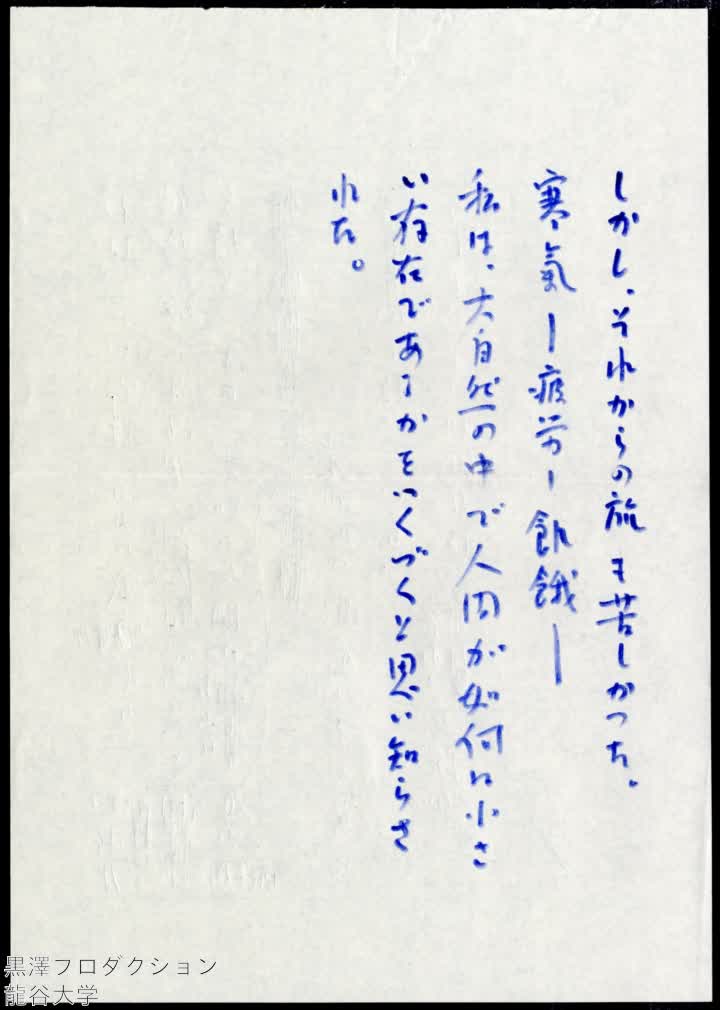 しかし、それからの旅も苦しかつた。
寒氣ー疲労ー飢餓ー
私は、大自然の中で人間が如何に小さ
い存在であるかをつくづくと思い知らさ
れた。
黒澤プロダクション
龍谷大学